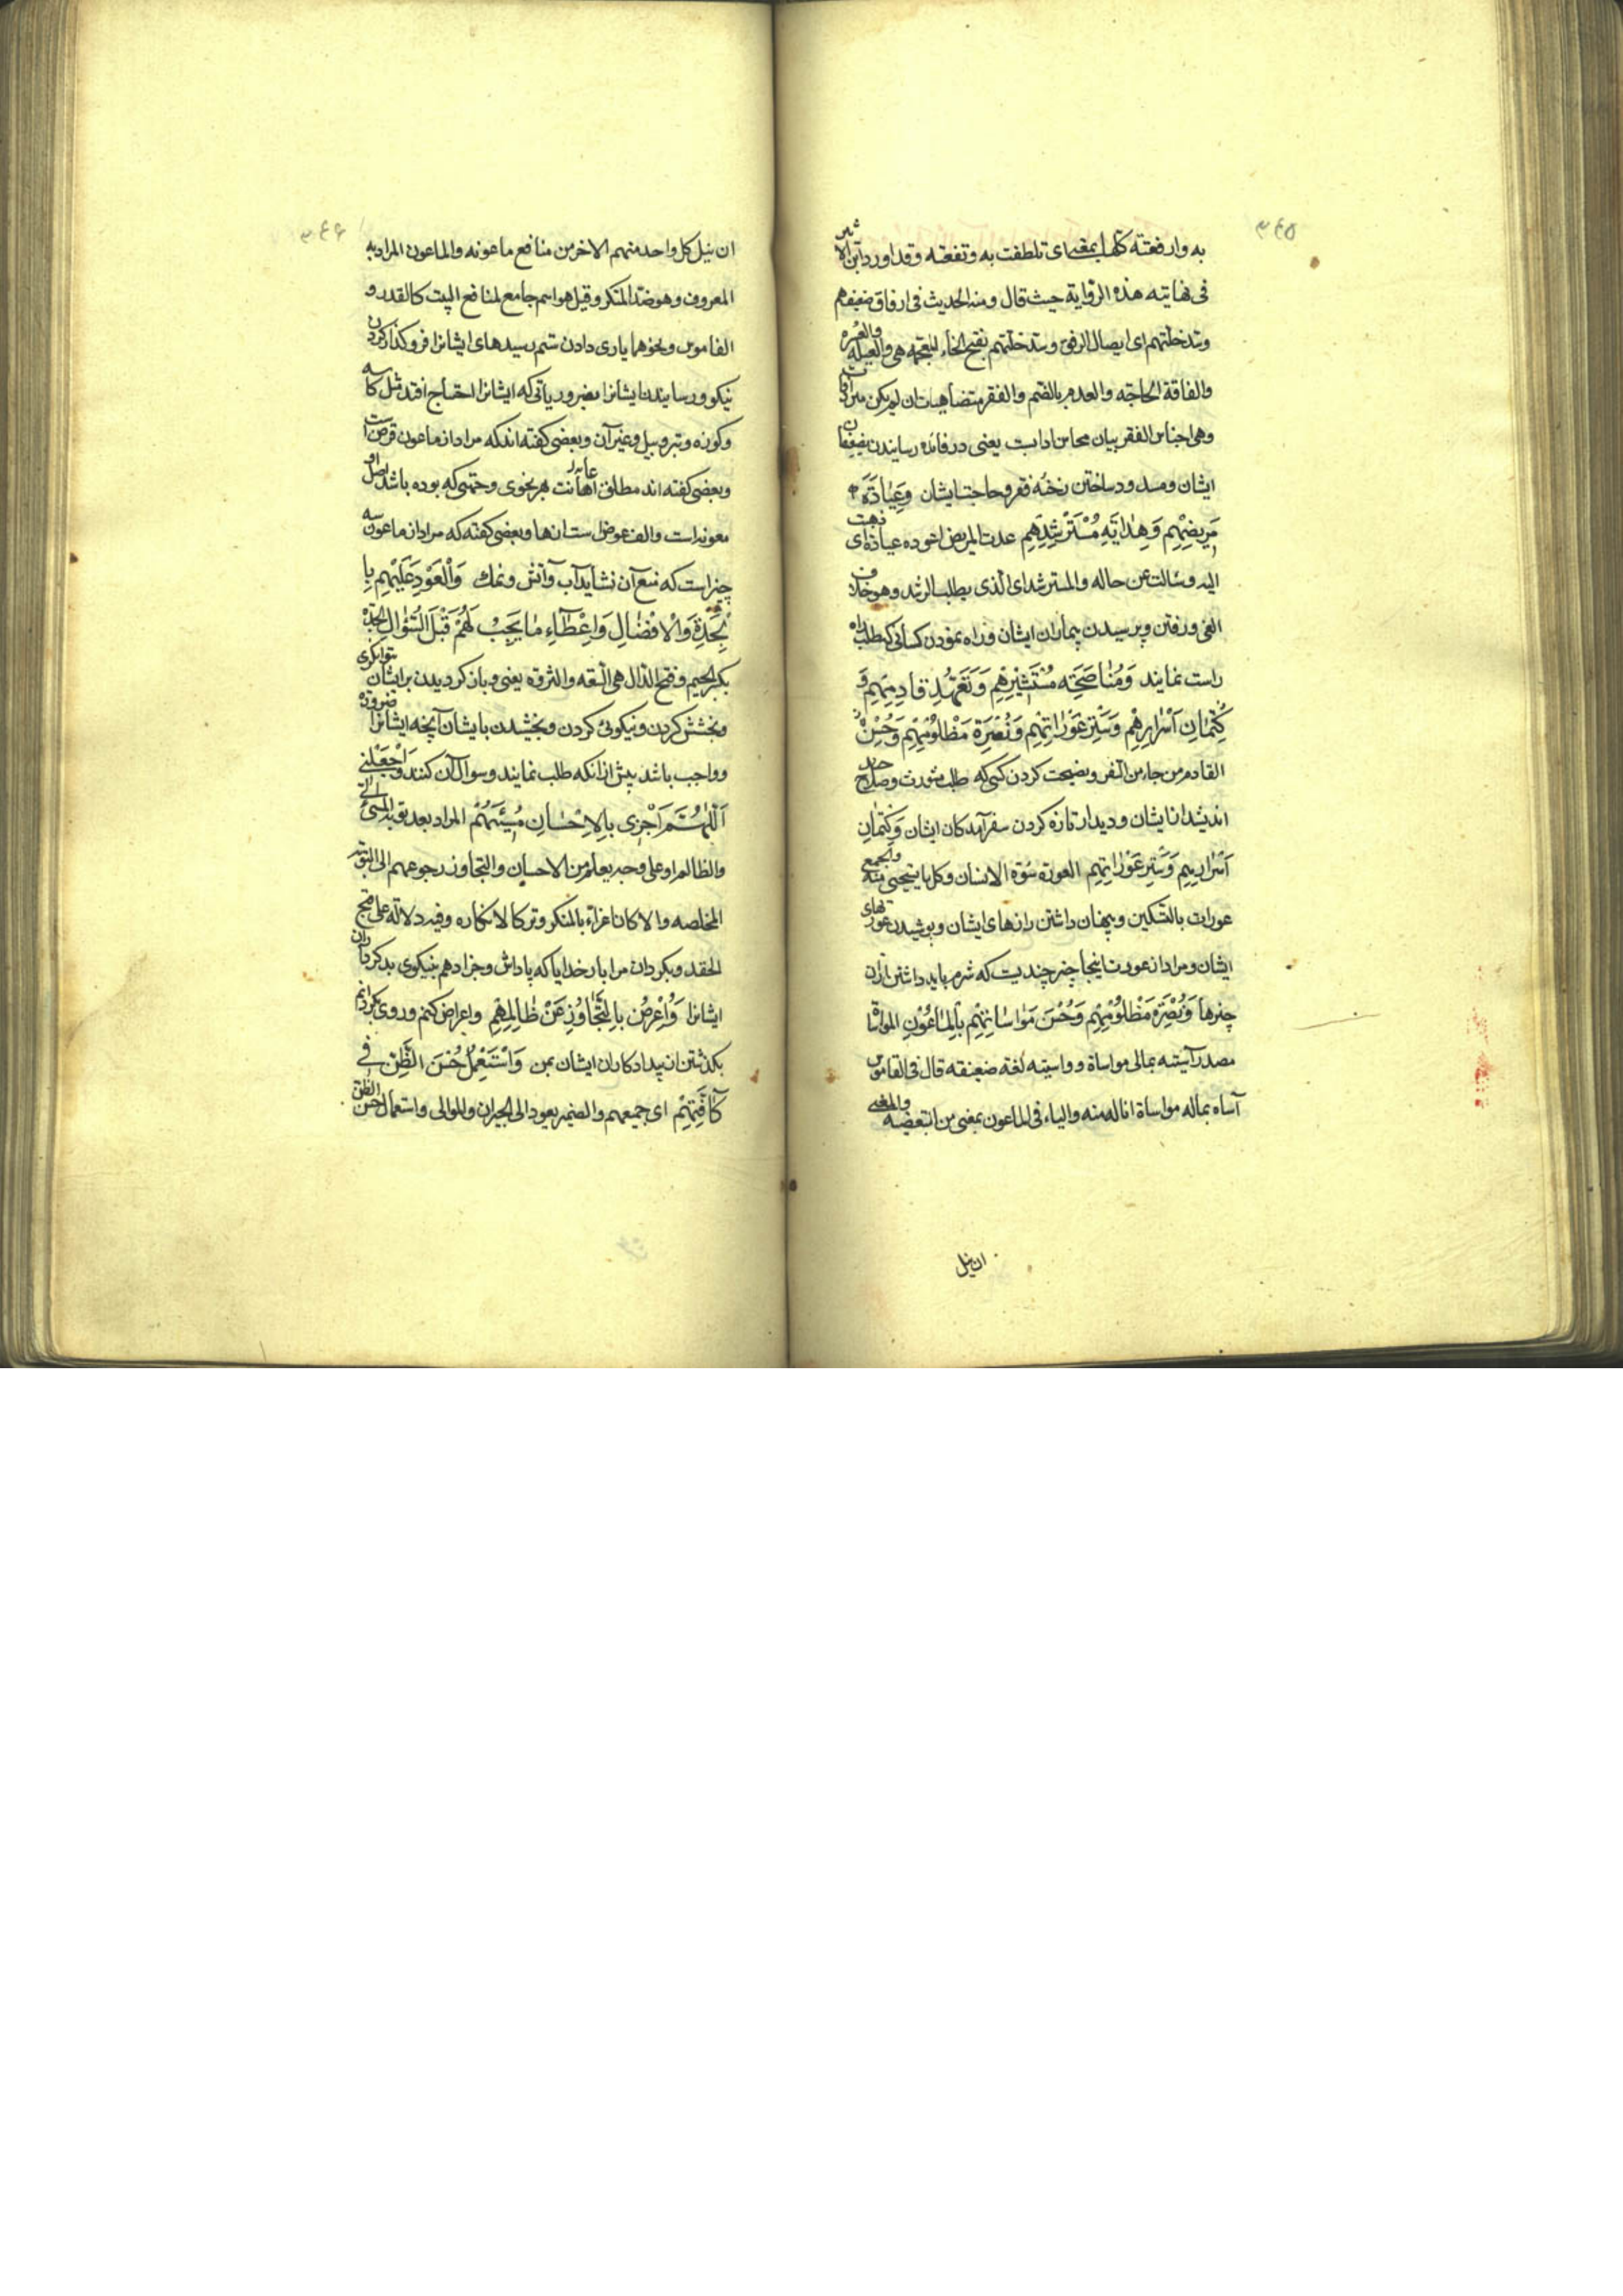 ۳۴۵
به وارفعته كلها بمعنى اى تلطفت به وتفعته وقد اورد ابن الاثير
فى نهايته هذه الرواية حيث قال ومنه الحديث فى ارفاق ضعيفهم
وسد خلتهم اى ايصال الرفق وسد خلتهم بفتح الخاء المعجمة هى والعيلة والعسرة
والفاقة الحاجة والعدم بالضم والفقر متضاهيات ان لم يكن مترادفات
وهى اجناس الفقر بيان محاسن ادابست يعنى در فائده رسانيدن بضعيفان
ايشان ومسدود ساختن رخنه فقر وحاجت ايشان وَعِيَادَةِ
مَرِيضِهِمْ وَهِدَايَةِ مُسْتَرْشِدِهِمْ عدت المريض اعوده عيادة اى ذهبت
اليه وسالت عن حاله والمسترشد اى الذى يطلب الرشد وهو خلاف
الغى ورفتن وپرسيدن بيماران ايشان وراه نمودن كسانى كه طلب راه
راست نمايند وَمُنَاصَحَةِ مُسْتَشِيرِهِمْ وَتَعَهُّدِ قَادِمِهِمْ وَ
كِتْمَانِ أَسْرَارِهِمْ وَسَتْرِ عَوْرَاتِهِمْ وَنُصْرَةِ مَظْلُومِهِمْ وَحُسْنِ
القادم من جاء من السفر ونصيحت كردن كسى كه طلب مشورت وصلاح
انديشد از ايشان وديدار تازه كردن سفر آمدكان ايشان وَكِتْمَانِ
أَسْرَارِهِمْ وَسَتْرِ عَوْرَاتِهِمْ العورة سوءة الانسان وكل ما يستحيى منه والجمع
عورات بالتسكين وپنهان داشتن رازهاى ايشان وپوشيدن عورتهاى
ايشان ومراد از عورت اينجا چيز چنديست كه شرم بايد داشتن ازان
چيزها وَنُصْرَةِ مَظْلُومِهِمْ وَحُسْنِ مَوَاسَاتِهِمْ بِالْمَاعُونِ المواساة
مصدر آسيته بمالى مواساة وواسيته لغة ضعيفة قال فى القاموس
آساه بماله مواساة اناله منه والياء فى الماعون بمعنى من التبعيضية والمعنى
ان ينيل
۳۴۶
ان ينيل كل واحد منهم الاخر من منافع ماعونه والماعون المراد به
المعروف وهو ضد المنكر وقيل هو اسم جامع لمنافع البيت كالقدر و
الفاموس ونحوهما يارى دادن ستم رسيدهاى ايشانرا فرو كذار كردن
نيكو ورسانيدن ايشانرا بضرورياتى كه ايشانرا احتياج افتد مثل كاسه
وكوزه وتبر وبيل وغير آن وبعضى كفته اند كه مراد از ماعون قرض است
وبعضى كفته اند مطلق اعانت هر نحوى كه بوده باشد اصل او
معونه است والف عوض است از ها وبعضى كفته كه مراد از ماعون سه
چيز است كه منع آن نشايد آب وآتش ونمك وَالْعَوْدِ عَلَيْهِمْ بِا
لْجِدَةِ وَالْاِفْضَالِ وَاِعْطَآءِ مَا يَجِبُ لَهُمْ قَبْلَ السُّؤَالِ الجدة
بكسر الجيم وفتح الدال هى السعة والثروة يعنى وباز كرديدن بر ايشان بتوانكرى
وبخشش كردن ونيكوئى كردن وبخشيدن بايشان آنچه ايشانرا ضرورة
وواجب باشد پيش از انكه طلب نمايند وسوال آن كنند وَاجْعَلْنِى
اَللّٰهُمَّ اَجْزِى بِالْاِحْسَانِ مُسِيْئَهُمْ المراد بعد توبة المسئ
والظالم او على وجه يعلم من الاحسان والتجاوز رجوعهم الى التوبة
المخلصه والا كان اغراء بالمنكر وتركا لانكاره وفيه دلالة على قبح
الحقد وبكردان مرا بار خدايا كه پاداش وجزا دهم بنيكوى بدكرداران
ايشانرا وَاُعْرِضُ بِالتَّجَاوُزِ عَنْ ظَالِمِهِمْ واعراض كنم وروى بكردانم
بكذشتن از بيدادكاران ايشان بمن وَاَسْتَعْمِلُ حُسْنَ الظَّنِّ فِى
كَآفَّتِهِمْ اى جميعهم والضمير يعود الى الجيران والموالى واستعمال حسن الظن